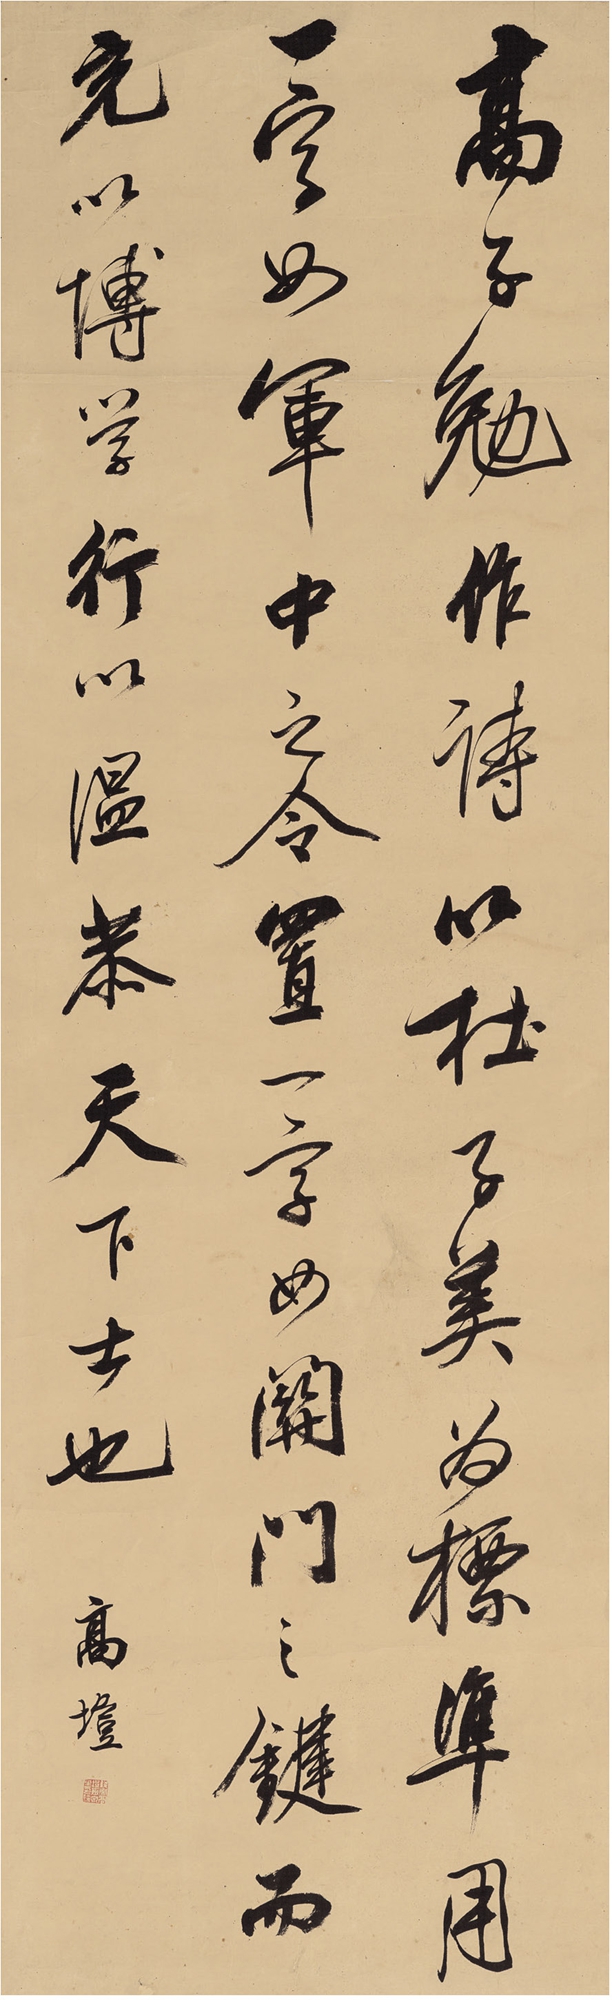 高子勉作詩以杜子美為標準用
一字如軍中之令置一字如關門之鍵而
充以博學行以溫恭天下士也
高塏